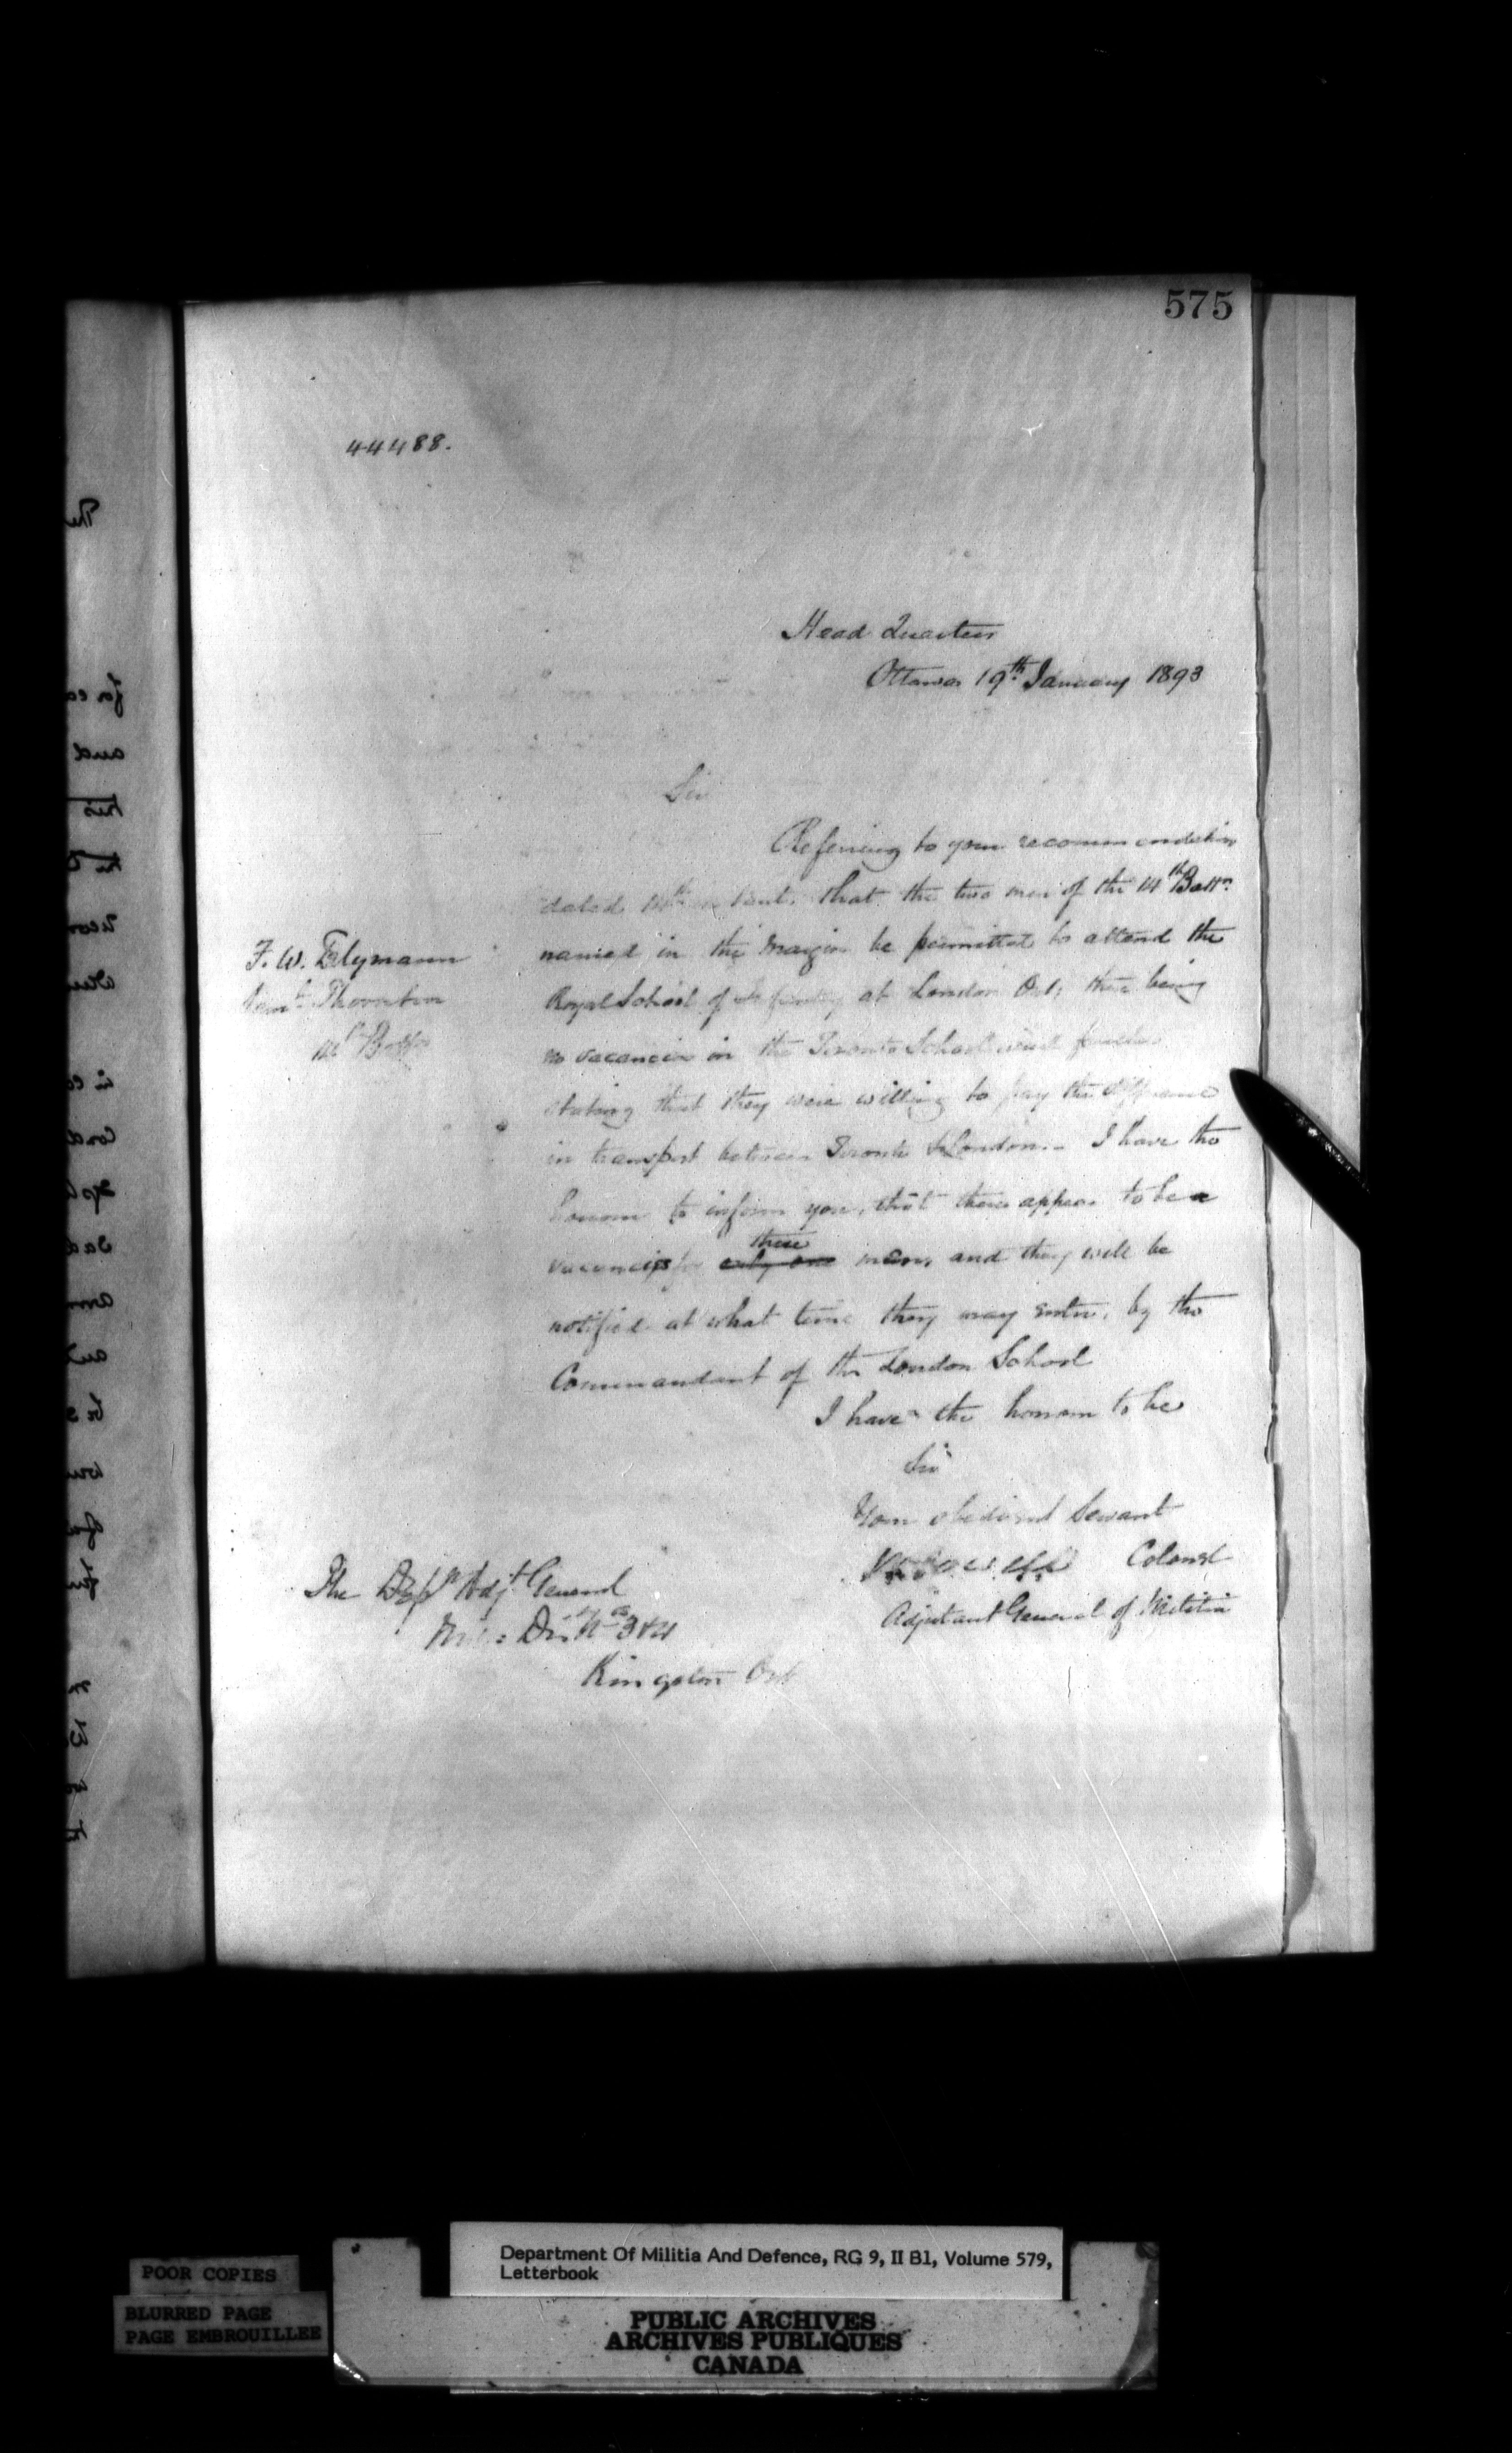 575
44488.
Head Quarters
Ottawa 19th January 1893
Sir
Referring to your recommendation
dated 14th that the two men of the 14th Battn
F. W. Elymann
named in the Margin be permitted to attend the
Thornton
Royal School of Infantry at London Ont, there being
Batt
no vacancies in the Toronto School
stating that they were willing to pay the difference
in transport between Toronto & London. - I have the
honour to inform you, that there appear to be
vacancies for only one three men, and they will be
notified at what time they may enter, by the
Commandant of the London School
I have the honour to be
Sir
Your obedient Servant
Colonel
Adjutant General of Militia
The Depy Adjt General
Nos 3 & 4
Kingston Ont
Department Of Militia And Defence, RG 9, II B1, Volume 579,
Letterbook
POOR COPIES
BLURRED PAGE
PAGE EMBROUILLEE
PUBLIC ARCHIVES
ARCHIVES PUBLIQUES
CANADA